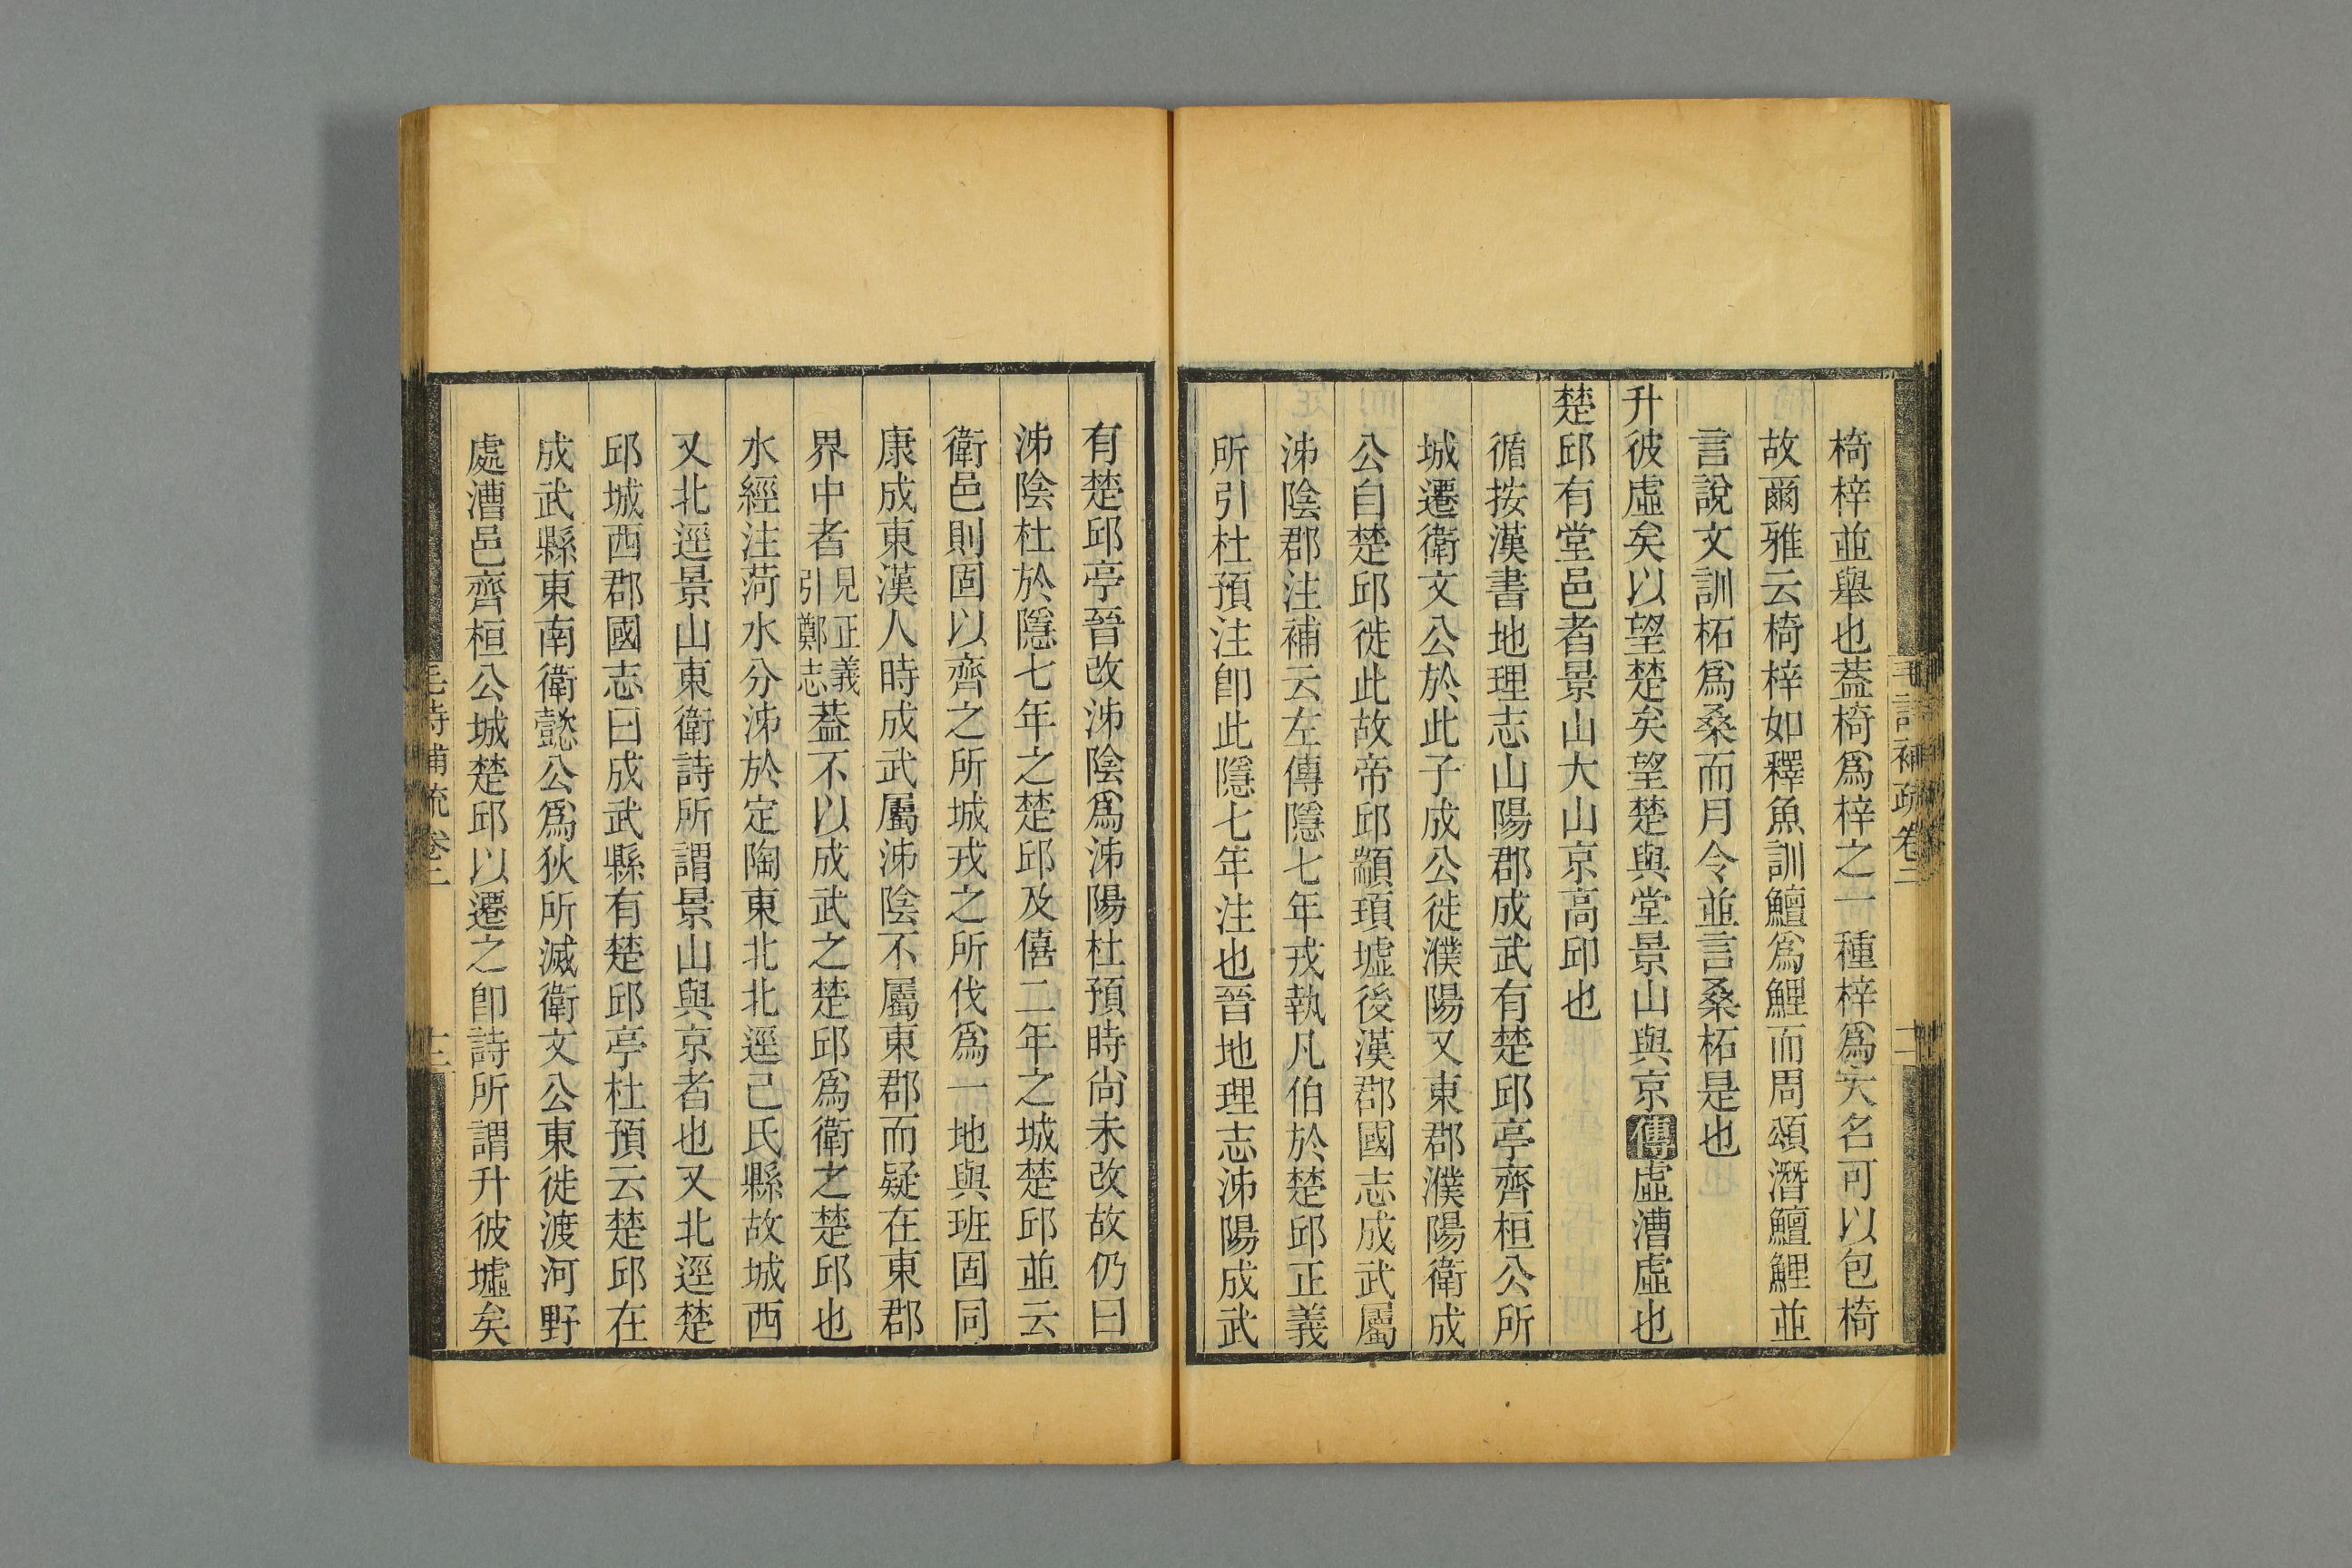 椅梓並舉也蓋椅爲梓之一種梓爲大名可以包椅
故爾雅云椅梓如釋魚訓鱣爲鯉而周頌潛鱣鯉並
言說文訓柘爲桑而月令並言桑柘是也
升彼虛矣以望楚矣望楚與堂景山與京傳虛漕虛也
楚邱有堂邑者景山大山京高邱也
循按漢書地理志山陽郡成武有楚邱亭齊桓公所
城遷衛文公於此子成公徙濮陽又東郡濮陽衛成
公自楚邱徙此故帝邱顓頊墟後漢郡國志成武屬
泲陰郡注補云左傳隱七年戎執凡伯於楚邱正義
所引杜預注卽此隱七年注也晉地理志泲陽成武
有楚邱亭晉改泲陰爲泲陽杜預時尙未改故仍曰
泲陰杜於隱七年之楚邱及僖二年之城楚邱並云
衛邑則固以齊之所城戎之所伐爲一地與班固同
康成東漢人時成武屬泲陰不屬東郡而疑在東郡
界中者見正義引鄭志蓋不以成武之楚邱爲衛之楚邱也
水經注菏水分泲於定陶東北北逕己氏縣故城西
又北逕景山東衛詩所謂景山與京者也又北逕楚
邱城西郡國志曰成武縣有楚邱亭杜預云楚邱在
成武縣東南衛懿公爲狄所滅衛文公東徙渡河野
處漕邑齊桓公城楚邱以遷之卽詩所謂升彼墟矣
毛詩補疏卷二